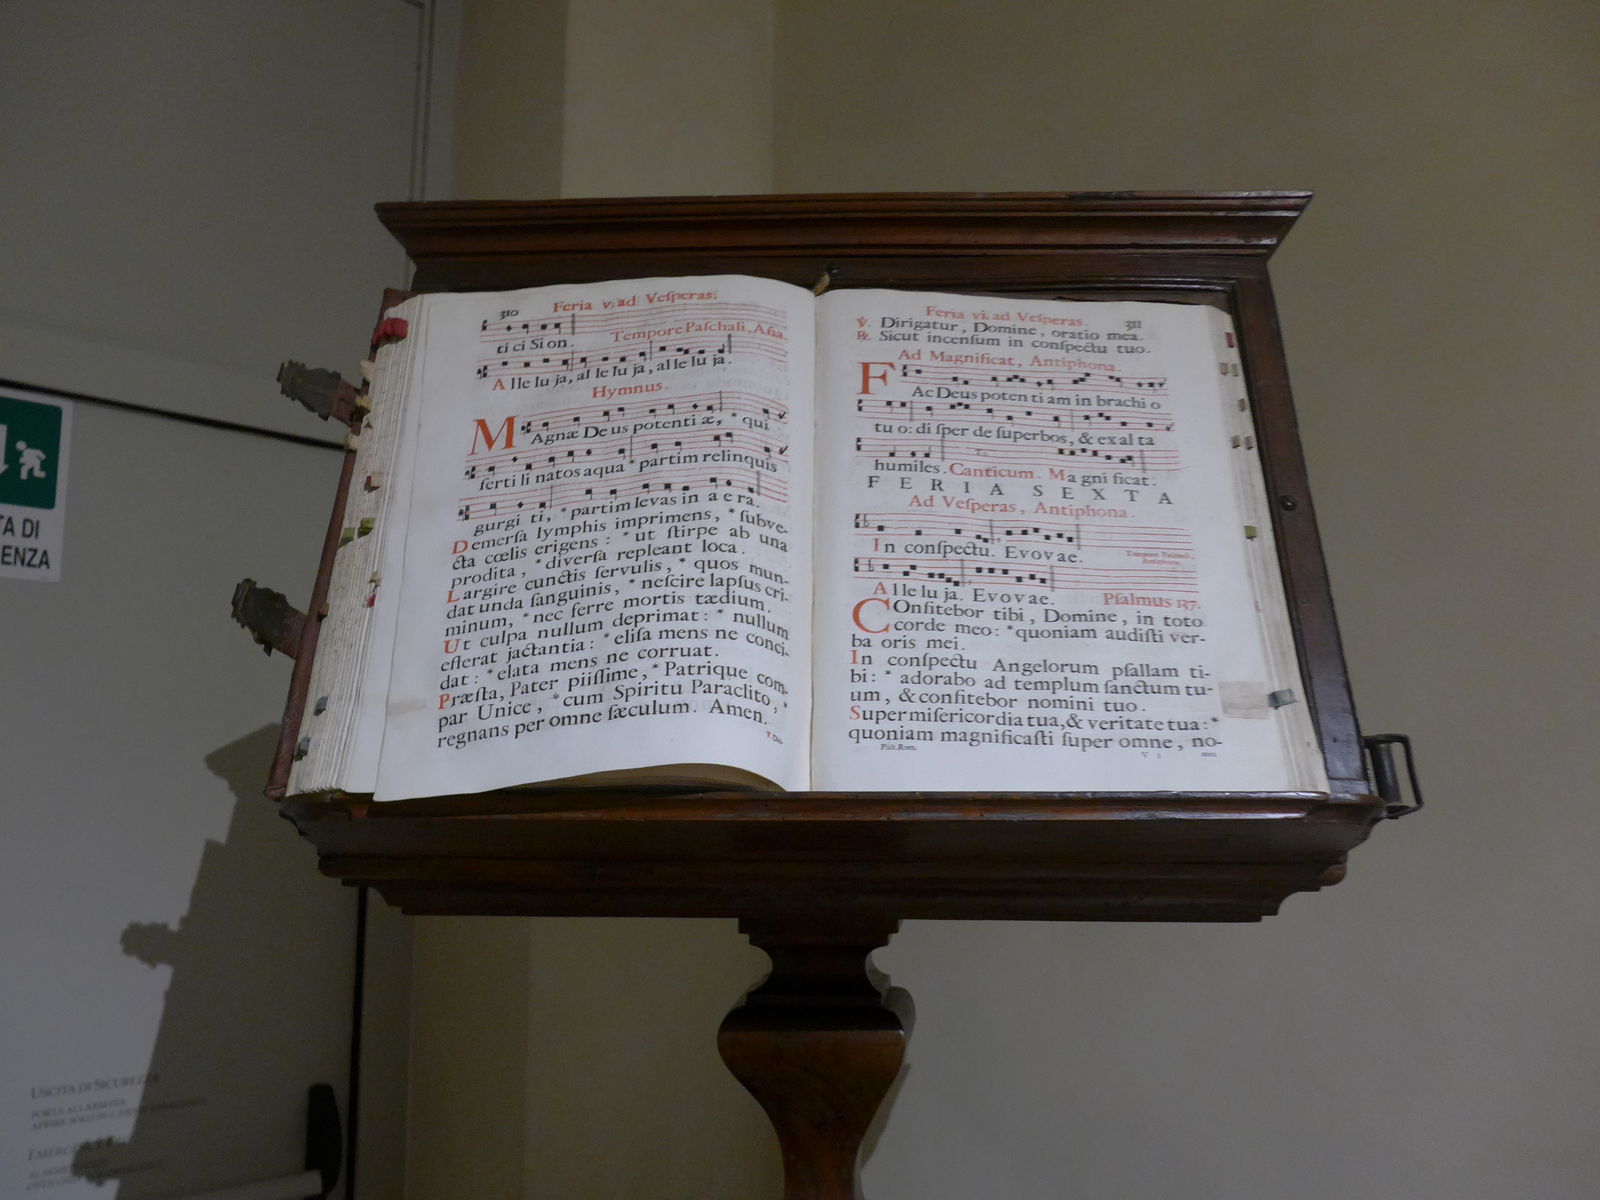 310 Feria v. ad Veſperas.
ti ci Si on. Tempore Paſchali, Aña.
A lle lu ja, al le lu ja, al le lu ja.
Hymnus.
MAgnæ De us potenti æ, * qui
ferti li natos aqua * partim relinquis
gurgi ti, * partim levas in a e ra.
Demerſa lymphis imprimens, * ſubve-
cta cœlis erigens: * ut ſtirpe ab una
prodita, * diverſa repleant loca.
Largire cunctis ſervulis, * quos mun-
dat unda ſanguinis, * neſcire lapſus cri-
minum, * nec ferre mortis tædium.
Ut culpa nullum deprimat: * nullum
efferat jactantia: * eliſa mens ne conci-
dat: * elata mens ne corruat.
Præſta, Pater piiſſime, * Patrique com-
par Unice, * cum Spiritu Paraclito, *
regnans per omne ſæculum. Amen.
℣. Dir-
Feria vi. ad Veſperas. 311
℣. Dirigatur, Domine, oratio mea.
℟. Sicut incenſum in conſpectu tuo.
Ad Magnificat, Antiphona.
FAc Deus poten ti am in brachi o
tu o: di ſper de ſuperbos, & ex al ta
humiles. Canticum. Ma gni ficat.
FERIA SEXTA
Ad Veſperas, Antiphona.
In conſpectu. Evovae.
Tempore Paſchali,
Antiphona.
A lle lu ja. Evovae. Pſalmus 137.
COnfitebor tibi, Domine, in toto
corde meo: * quoniam audiſti ver-
ba oris mei.
In conſpectu Angelorum pſallam ti-
bi: * adorabo ad templum ſanctum tu-
um, & confitebor nomini tuo.
Super miſericordia tua, & veritate tua: *
quoniam magnificaſti ſuper omne, no-
Pſalt. Rom. V 3 men
TA DI
ENZA
USCITA DI SICUREZZA